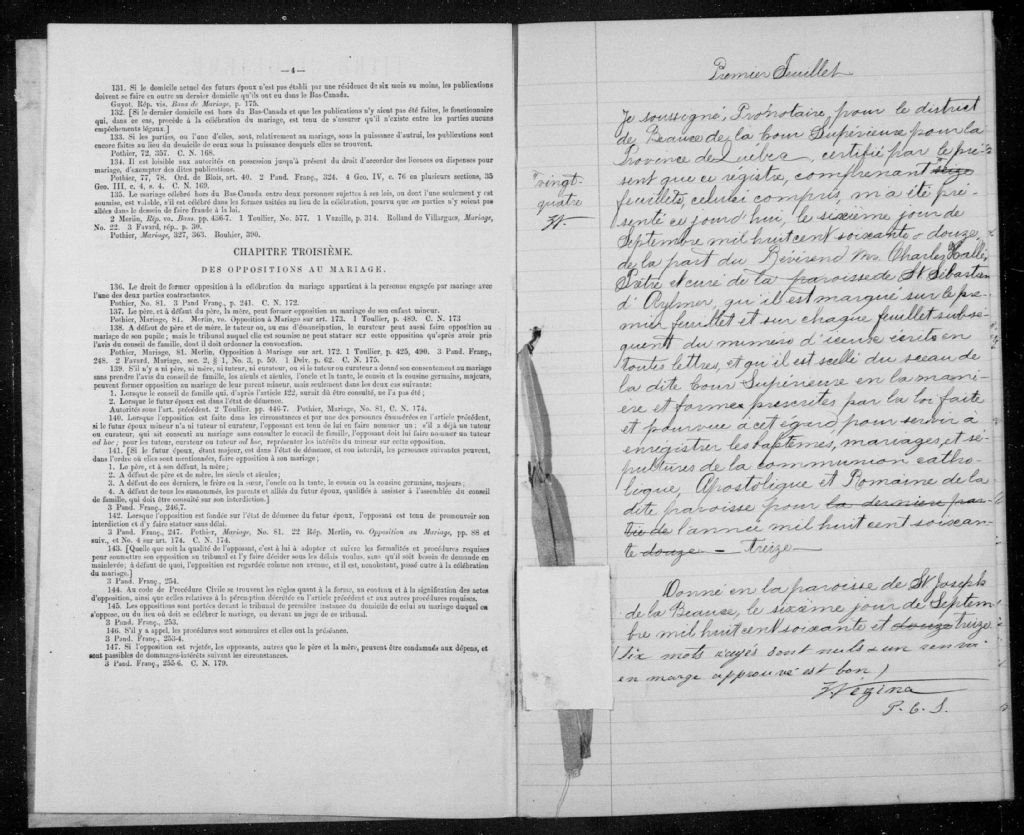 — 4 —
131. Si le domicile actuel des futurs époux n'est pas établi par une résidence de six mois au moins, les publications
doivent se faire en outre au dernier domicile qu'ils ont eu dans le Bas-Canada.
Guyot. Rép. vis. Bans de Mariage, p. 175.
132. [Si le dernier domicile est hors du Bas-Canada et que les publications n'y aient pas été faites, le fonctionnaire
qui, dans ce cas, procède à la célébration du mariage, est tenu de s'assurer qu'il n'existe entre les parties aucuns
empêchements légaux.]
133. Si les parties, ou l'une d'elles, sont, relativement au mariage, sous la puissance d'autrui, les publications sont
encore faites au lieu du domicile de ceux sous la puissance desquels elles se trouvent.
Pothier, 72, 357. C. N. 168.
134. Il est loisible aux autorités en possession jusqu'à présent du droit d'accorder des licences ou dispenses pour
mariage, d'exempter des dites publications.
Pothier, 77, 78. Ord. de Blois, art. 40. 2 Pand. Franç., 324. 4 Geo. IV, c. 76 en plusieurs sections, 35
Geo. III, c. 4, s. 4. C. N. 169.
135. Le mariage célébré hors du Bas-Canada entre deux personnes sujettes à ses lois, ou dont l'une seulement y est
soumise, est valable, s'il est célébré dans les formes usitées au lieu de la célébration, pourvu que ses parties n'y soient pas
allées dans le dessein de faire fraude à la loi.
2 Merlin, Rép. vo. Bans, pp. 436-7. 1 Toullier, No. 577. 1 Vazille, p. 314. Rolland de Villargues, Mariage,
No. 22. 3 Favard, rép., p. 39.
Pothier, Mariage, 327, 363. Bouhier, 390.
CHAPITRE TROISIÈME.
DES OPPOSITIONS AU MARIAGE.
136. Le droit de former opposition à la célébration du mariage appartient à la personne engagée par mariage avec
l'une des deux parties contractantes.
Pothier, No. 81. 3 Pand Franç., p. 241. C. N. 172.
137. Le père, et à défaut du père, la mère, peut former opposition au mariage de son enfant mineur.
Pothier, Mariage, 81. Merlin, vo. Opposition à Mariage sur art. 173. 1 Toullier, p. 489. C. N. 173
138. A défaut de père et de mère, le tateur ou, au cas d'émancipation, le curateur peut aussi faire opposition au
mariage de son pupile; mais le tribunal auquel elle est soumise ne peut statuer sur cette opposition qu'après avoir pris
l'avis du conseil de famille, dont il doit ordonner la convocation.
Pothier, Mariage, 81. Merlin, Opposition à Mariage sur art. 172. 1 Toullier, p. 425, 490. 3 Pand. Franç.,
248. 2 Favard, Mariage, sec. 2, § 1, No. 3, p. 59. 1 Delv. p. 62. C. N. 175.
139. S'il n'y a ni père, ni mère, ni tuteur, ni curateur, ou si le tuteur ou curateur a donné son consentement au mariage
sans prendre l'avis du conseil de famille, les aïeuls et aïeules, l'oncle et la tante, le cousin et la cousine germains, majeurs,
peuvent former opposition au mariage de leur parent mineur, mais seulement dans les deux cas suivants:
1. Lorsque le conseil de famille qui, d'après l'article 122, aurait dû être consulté, ne l'a pas été;
2. Lorsque le futur époux est dans l'état de démence.
Autorités sous l'art. précédent. 2 Toullier, pp. 446-7. Pothier, Mariage, No. 81, C. N. 174.
140. Lorsque l'opposition est faite dans les circonstances et par une des personnes énumérées en l'article précédent,
si le futur époux mineur n'a ni tuteur ni curateur, l'opposant est tenu de lui en faire nommer un; s'il a déjà un tuteur
ou curateur, qui ait consenti au mariage sans consulter le conseil de famille, l'opposant doit lui faire nommer un tuteur
ad hoc; pour les tuteur, curateur ou tuteur ad hoc, représenter les intérêts du mineur sur cette opposition.
141. [Si le futur époux, étant majeur, est dans l'état de démence, et non interdit, les personnes suivantes peuvent,
dans l'ordre où elles sont mentionnées, faire opposition à son mariage;
1. Le père, et à son défaut, la mère;
2. A défaut de père et de mère, les aïeuls et aïeules;
3. A défaut de ces derniers, le frère ou la sœur, l'oncle ou la tante, le cousin ou la cousine germains, majeurs;
4. A défaut de tous les susnommés, les parents et alliés du futur époux, qualifiés à assister à l'assemblée du conseil
de famille, qui doit être consulté sur son interdiction.]
3 Pand. Franç., 246,7.
142. Lorsque l'opposition est fondée sur l'état de démence du futur époux, l'opposant est tenu de promouvoir son
interdiction et d'y faire statuer sans délai.
3 Pand. Franç., 247. Pothier, Mariage, No. 81. 22 Rép. Merlin, vo. Opposition au Mariage, pp. 88 et
suiv., et No. 4 sur art. 174. C. N. 174.
143. [Quelle que soit la qualité de l'opposant, c'est à lui à adopter et suivre les formalités et procédures requises
pour soumettre son opposition au tribunal et l'y faire décider sous les délais voulus, sans qu'il soit besoin de demande en
mainlevée; à défaut de quoi, l'opposition est regardée comme non avenue, et il est, nonobstant, passé outre à la célébration
du mariage.]
3 Pand. Franç., 254.
144. Au code de Procédure Civile se trouvent les règles quant à la forme, au contenu et à la signification des actes
d'opposition, ainsi que celles relatives à la péremption décrétée en l'article précédent et aux autres procédures requises.
145. Les oppositions sont portées devant le tribunal de première instance du domicile de celui au mariage duquel on
s'oppose, ou du lieu où doit se célébrer le mariage, ou devant un juge de ce tribunal.
3 Pand. Franç., 253.
146. S'il y a appel, les procédures sont sommaires et elles ont la préséance.
3 Pand. Franç., 253-4.
147. Si l'opposition est rejetée, les opposants, autres que le père et la mère, peuvent être condamnés aux dépens, et
sont passibles de dommages-intérêts suivant les circonstances.
3 Pand. Franç., 255-6. C. N. 179.
Premier Feuillet
Je soussigné, Protonotaire, pour le district
de Beauce de la Cour Supérieure pour la
Province de Québec, certifié par le pré-
sent que ce registre, comprenant seize
vingt-
quatre
feuillets, celui ci compris, m'a été pré-
senté ce jourd'hui, le sixième jour de
Septembre mil huit cent soixante & douze,
de la part du Révérend Mr. Charles Halle,
Prêtre et curé de la paroisse de St Sébastien
d'Aylmer, qu'il est marqué sur le pre-
mier feuillet et sur chaque feuillet subsé-
quent du numéro d'iceux écrits en
toutes lettres, et qu'il est scellé du sceau de
la dite Cour Supérieure en la mani-
ère et formes prescrites par la loi faite
et pourvue à cet égard, pour servir à
enregistrer les baptêmes, mariages, et sé-
pultures de la communion catho-
lique, Apostolique et Romaine de la
dite paroisse pour la dernière par-
tie de l'année mil huit cent soixan-
te douze — treize —
Donné en la paroisse de St Joseph
de la Beauce, le sixième jour de Septem-
bre mil huit cent soixante et douze treize
(six mots rayés sont nuls & un renvoi
en marge approuvé est bon)
Vézina
P. C. S.